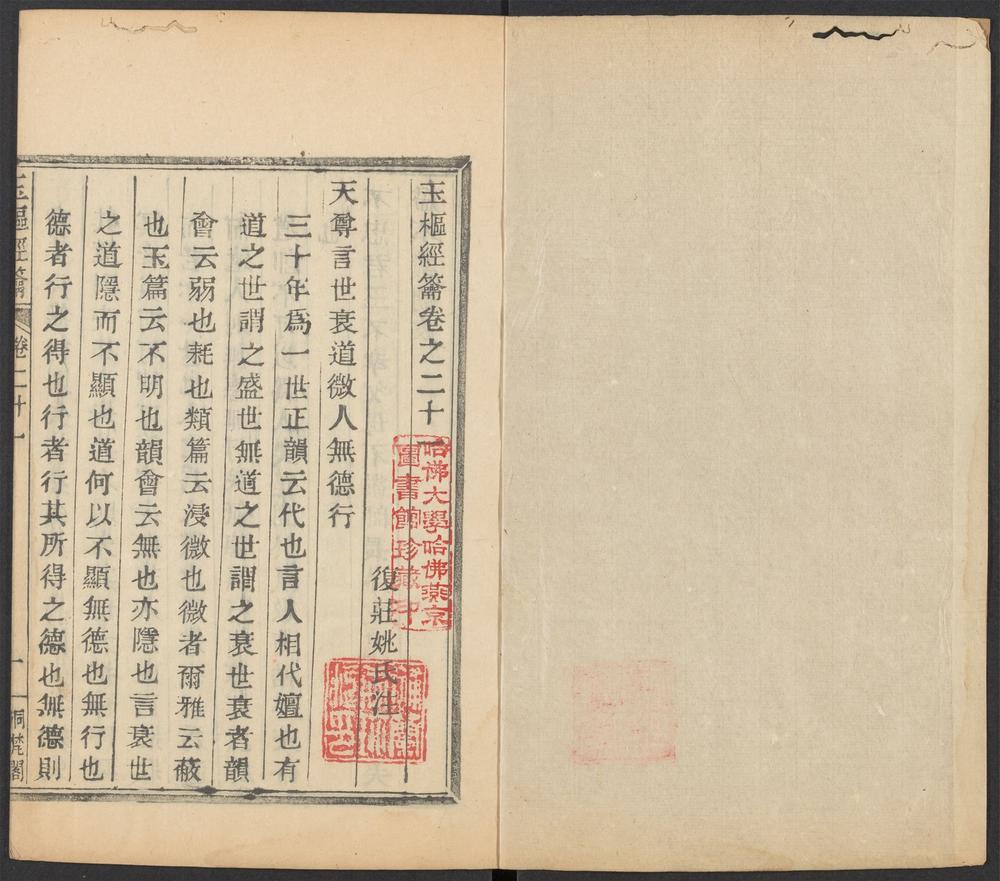 玉樞經籥卷之二十一
復莊姚氏注
天尊言世衰道微人無德行
三十年爲一世正韻云代也言人相代嬗也有
道之世謂之盛世無道之世謂之衰世衰者韻
會云弱也耗也類篇云浸微也微者爾雅云蔽
也玉篇云不明也韻會云無也亦隱也言衰世
之道隱而不顯也道何以不顯無德也無行也
德者行之得也行者行其所得之德也無德則
玉樞經籥
卷二十一
一
桐梵閣
哈佛大學哈佛燕京
圖書館珍藏印